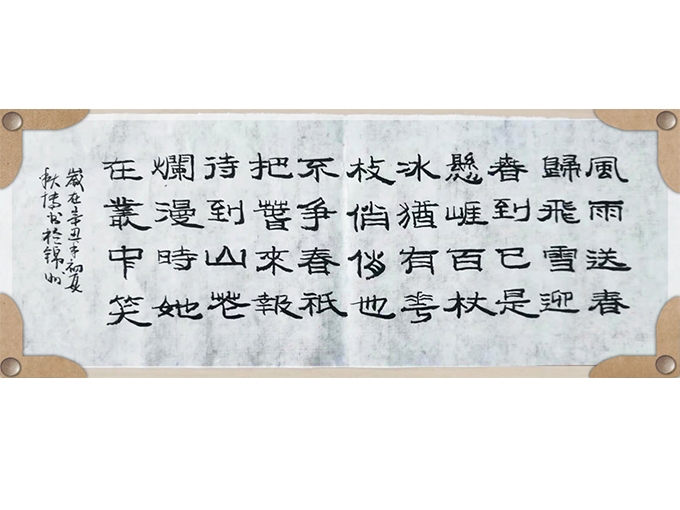 風雨送春
歸飛雪迎
春到已是
懸崕百杖
冰猶有花
枝俏俏也
不爭春祇
把春來報
待到山花
爛漫時她
在叢中笑
歲在辛丑年初夏
秋书於錦州